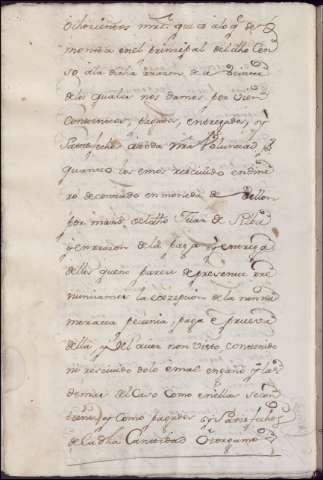 ochocientos mrs. que
moneda en el prinzipal del dho Cen
so a la dicha razon de a
de los quales nos damos por vien
contentos, pagados, entregados, y
satisfechos a toda nra Voluntad
quanto los emos rezeuido en dine
ro de contado en moneda de Vellon
por mano del dho Juan de
y en razon de la paga y entrega
dellos que no pareze de presente Re
nunciamos la exzepzion de la nonnu
merata pecunia, paga e prueva
della y del aver non visto, contenido
ni rezeuido dolo e mal engaño y las
demas del Caso Como en ellas se con
tiene, y Como pagados y Satisfechos
de la dha Cantidad Otorgamos